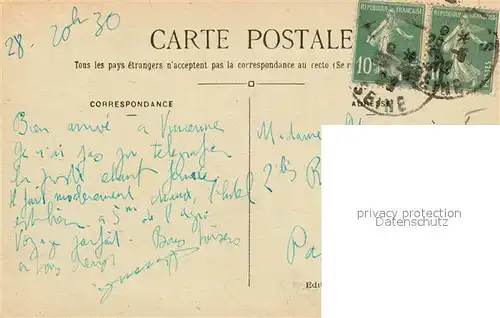 28. 20h 30
CARTE POSTALE
Tous les pays étrangers n'acceptent pas la correspondance au recto (Se
REPUBLIQUE FRANÇAISE
REPUBLIQUE FRANÇAISE
10
POSTES
SEINE
CORRESPONDANCE
ADRESSE
Bien arrivé à Vincennes
Je n'ai pas pu telegraphier
la poste étant fermée
Il fait moderement chaud, l'hotel
est bien a 5m de l'
Voyage parfait. Bons baisers
a tous deux
Madame
2 bis R
Pa
Edit
privacy protection
Datenschutz